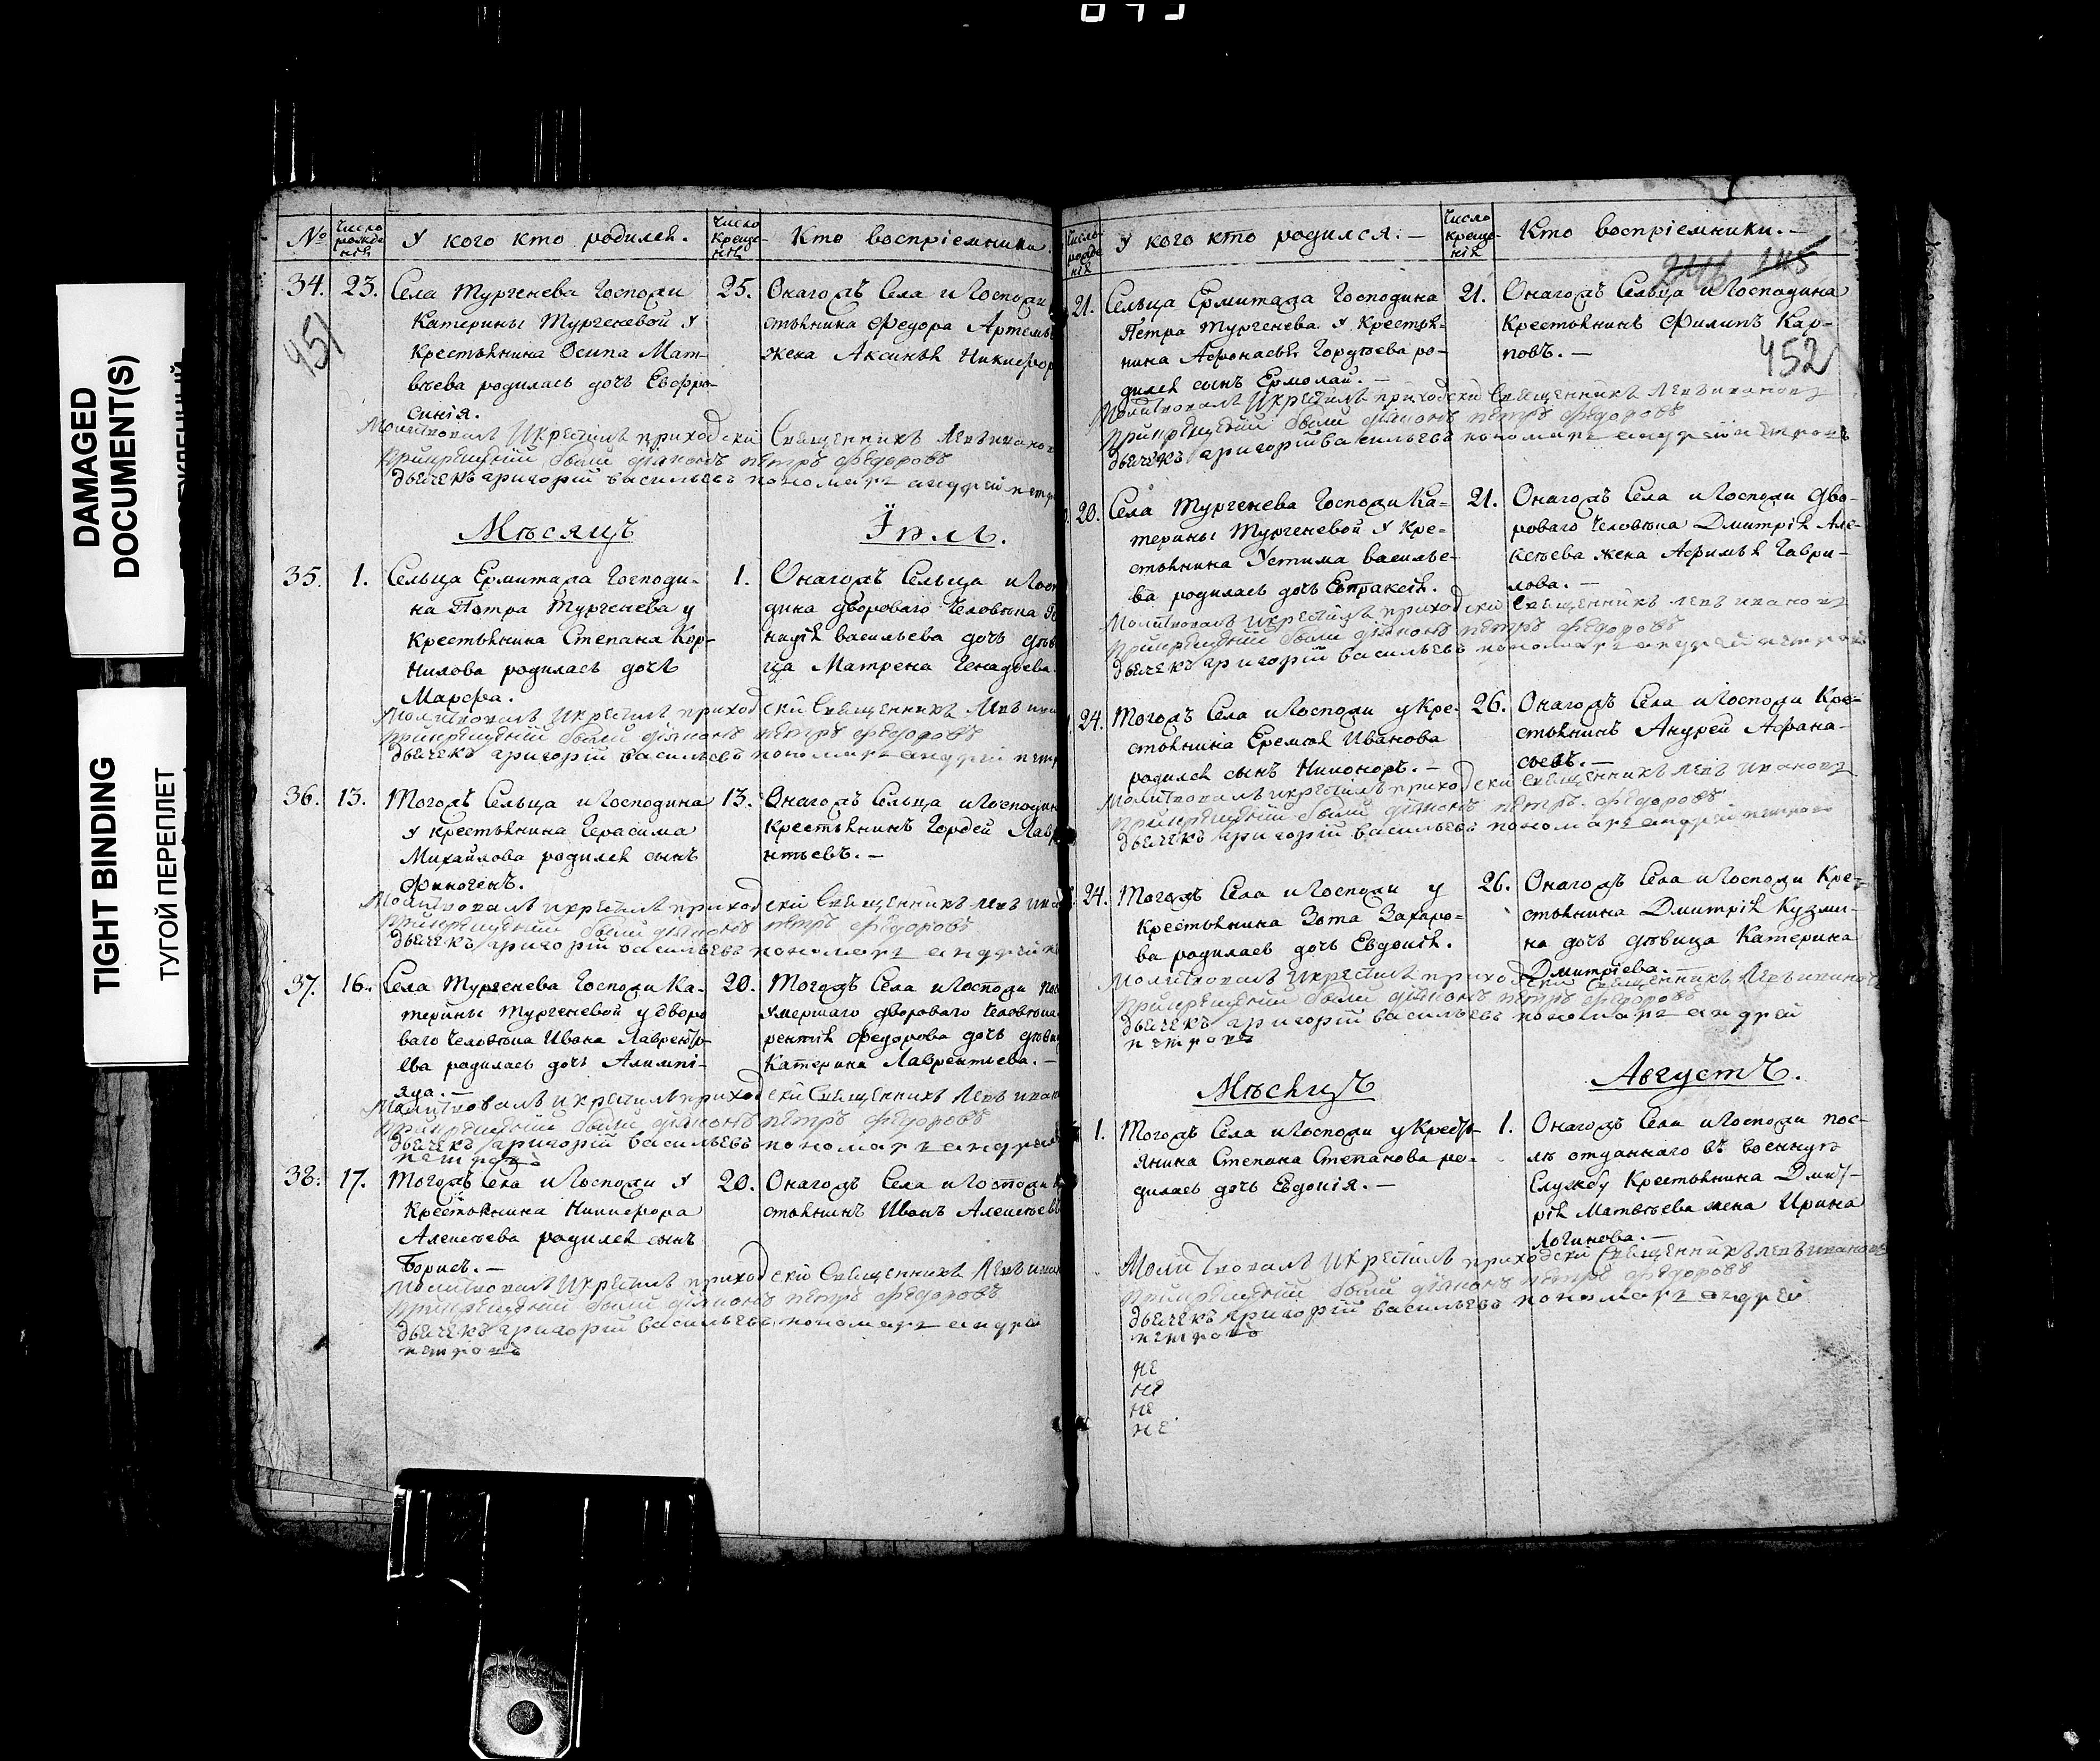 DAMAGED
DOCUMENT(S)
TIGHT BINDING
ТУГОЙ ПЕРЕПЛЕТ
№
Число рожде нія
У кого кто родился.
Число креще- нія
Кто воспріемники.
451
34. 23. Села Тургенева Госпожи
Катерины Тургеневой у
крестьянина Осипа Мат-
вѣева родилась дочь Евфра-
синія.
25. Онагожъ Села и Госпожи
стьянина Федора Артемье
жена Аксинья Никифор
Молитвовалъ и крестилъ приходскій Священникъ Левъ Ивано
при крещеніи были діаконъ петръ федоровъ
дьячекъ григорій васильевъ пономарь андрей петр
Мѣсяцъ Іюль.
35. 1. Сельца Ермитажа Господи-
на Петра Тургенева у
крестьянина Степана Кор-
нилова родилась дочь
Марфа.
1. Онагожъ Сельца и Госп
дина двороваго человѣка Ге
надія васильева дочь дѣв
ца Матрена Генадьева.
Молитвовалъ и крестилъ приходскій Священникъ Левъ ива
при крещеніи были діаконъ петръ федоровъ
дьячекъ григорій васильевъ пономарь андрей петр
36. 13. Тогожъ Сельца и Господина
у крестьянина Герасима
Михайлова родился сынъ
Финогенъ.
13. Онагожъ Сельца и Господин
крестьянинъ Гордей Лавр
нтьевъ. —
Молитвовалъ и крестилъ приходскій Священникъ Левъ ива
при крещеніи были діаконъ петръ федоровъ
дьячекъ григорій васильевъ пономарь андрей
37. 16. Села Тургенева Госпожи Ка-
терины Тургеневой у дворо
ваго человѣка Ивана Лавренть-
ева родилась дочь Алимпі-
яда. —
20. Тогожъ Села и Госпожи пос
умершаго двороваго человѣка
рентія Федорова дочь дѣви
Катерина Лаврентьева. —
Молитвовалъ и крестилъ приходскій Священникъ Левъ иван
при крещеніи были діаконъ петръ федоровъ
дьячекъ григорій васильевъ пономарь андрей
петровъ
38. 17. Тогожъ Села и Госпожи у
Крестьянина Никифора
Алексѣева родился сынъ
Борисъ. —
20. Онагожъ Села и Госпожи К
стьянинъ Иванъ Алексѣевъ
Молитвовалъ и крестилъ приходскій Священникъ Левъ ива
при крещеніи были діаконъ петръ федоровъ
дьячекъ григорій васильевъ пономарь андре
петровъ
Число рожде нія
У кого кто родился. —
Число креще- нія
Кто воспріемники. —
145
452
21. Сельца Ермитажа Господина
Петра Тургенева у Крестья-
нина Афонасья Гордѣева ро-
дился сынъ Ермолай. —
21. Онагожъ Сельца и Господина
Крестьянинъ Филипъ Кар-
повъ. —
Молитвовалъ и крестилъ приходскій Священникъ Левъ ивановъ
при крещеніи были діаконъ петръ федоровъ
дьячекъ григорій васильевъ пономарь андрей петровъ
20. Села Тургенева Госпожи Ка-
терины Тургеневой у Кре-
стьянина Устима василье-
ва родилась дочь Евпраксія.
21. Онагожъ Села и Госпожи дво-
роваго человѣка Дмитрія Але-
ксѣева жена Афимья Гаври-
лова. —
Молитвовалъ и крестилъ приходскій Священникъ левъ ивановъ
при крещеніи были діаконъ петръ федоровъ
дьячекъ григорій васильевъ пономарь андрей петровъ
24. Тогожъ Села и Госпожи у Кре-
стьянина Еремея Иванова
родился сынъ Никоноръ. —
26. Онагожъ Села и Госпожи Кре-
стьянинъ Андрей Афана-
сьевъ. —
Молитвовалъ и крестилъ приходскій Священникъ левъ ивановъ
при крещеніи были діаконъ петръ федоровъ
дьячекъ григорій васильевъ пономарь андрей петровъ
24. Тогожъ Села и Госпожи у
крестьянина Зота Захаро-
ва родилась дочь Евдокія.
26. Онагожъ Села и Госпожи Кре-
стьянина Дмитрія Кузми-
на дочь дѣвица Катерина
Дмитріева. —
Молитвовалъ и крестилъ приходскій Священникъ Левъ ивановъ
при крещеніи были діаконъ петръ федоровъ
дьячекъ григорій васильевъ пономарь андрей
петровъ
Мѣсяцъ Августъ.
1. Тогожъ Села и Госпожи у Кресть-
янина Степана Степанова ро-
дилась дочь Евдокія. —
1. Онагожъ Села и Госпожи пос-
лѣ отданнаго въ военную
Службу Крестьянина Дмит-
рія Матвѣева жена Ирина
Логинова. —
Молитвовалъ и крестилъ приходскій Священникъ левъ ивановъ
при крещеніи были діаконъ петръ федоровъ
дьячекъ григорій васильевъ пономарь андрей
петровъ
не
не
не
не